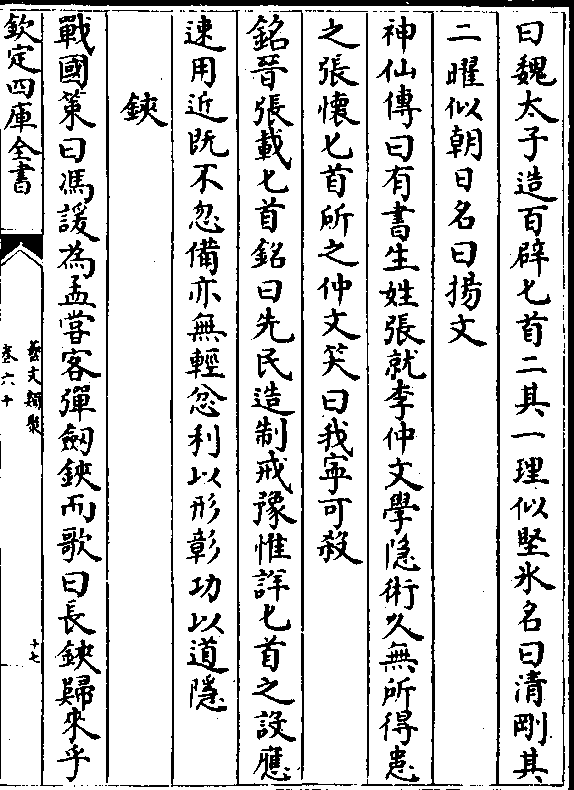 曰魏太子造百辟匕首二其一理似堅氷名曰清剛其
二曜似朝日名曰揚文
神仙傳曰有書生姓張就李仲文學隠術久無所得恚
之張懷匕首所之仲文笑曰我寧可殺
銘晉張載匕首銘曰先民造制戒豫惟詳匕首之設應
速用近既不忽備亦無輕忿利以形彰功以道隱
鋏
戰國策曰馮諼為孟嘗客彈劒鋏而歌曰長鋏歸來乎
欽定四庫全書
藝文類聚
卷六十
十七